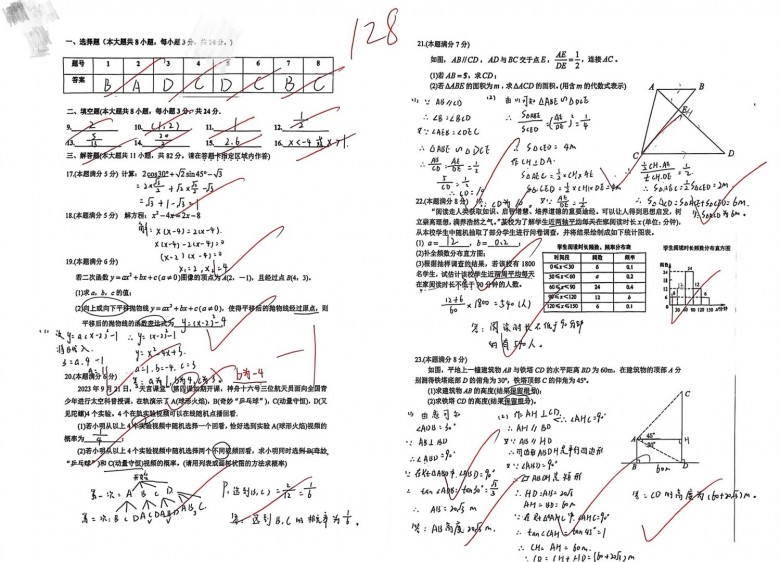 128
一、选择题(本大题共8小题,每小题3分,共24分.)
题号 1 2 3 4 5 6 7 8
答案 B A D C D C B C
二、填空题(本大题共8小题,每小题3分,共24分.
9. 2 10. (1,2) 11. 1 12. 1/2
15. 2.6 16. x<-4 或 x>1
三、解答题(本大题共11小题,共82分,请在答题卡指定区域内作答)
17.(本题满分5分) 计算:2cos30°+√2sin45°-√3
=2×√3/2+√2×√2/2-√3
=√3+1-√3=1
18.(本题满分5分) 解方程:x²-4x=2x-8
解: x(x-4)=2(x-4)
x(x-4)-2(x-4)=0
(x-2)(x-4)=0
x₁=2, x₂=4
19.(本题满分6分)
若二次函数y=ax²+bx+c(a≠0)图像的顶点为A(2,-1),且经过点B(4,3).
(1)求a、b、c的值;
(2)向上或向下平移抛物线y=ax²+bx+c(a≠0),使得平移后的抛物线经过原点,则
平移后的抛物线的函数表达式为 y=(x-2)²-4
y=a(x-2)²-1
y=(x-2)²-1
3=a·4-1
y=x²-4x+3
a=1
a=1,b=-4,c=3
b为-4
20.(本题满分6分)
2023年9月21日,“天宫课堂”第四课如期开课,神舟十六号三位航天员面向全国青
少年进行太空科普授课,在轨演示了A(球形火焰),B(奇妙“乒乓球”),C(动量守恒),D(又
见陀螺)4个实验,4个在轨实验视频可以在线随机点播回看.
(1)若小明从以上4个实验视频中随机选择一个回看,恰好选到实验A(球形火焰)视频的
概率为 1/4 ;
(2)若小明从以上4个实验视频中随机选择两个不同视频回看,求小明同时选到B(奇妙
“乒乓球”)和C(动量守恒)视频的概率.(请用列表或画树状图的方法求概率)
开始
第一次: A B C D
第二次: B C D A C D A B D A B C
P(选到B,C)=2/12=1/6
答:选到B.C的概率为1/6.
21.(本题满分7分)
如图,AB∥CD,AD与BC交于点E,AE/DE=1/2,连接AC.
(1)若AB=5,求CD;
(2)若△ABE的面积为m,求△ACD的面积.(用含m的代数式表示)
(1) ∵AB∥CD
∴∠B=∠BCD
又∵∠AEB=∠DEC
∴△ABE∽△DCE
∴AB/CD=AE/DE=1/2
5/CD=1/2
∴CD=10
(2) 由(1)可知△ABE∽△DCE
∴S△ABE/S△CED=(AE/DE)²=1/4
∴S△CED=4m
作CH⊥DA.
A B E H C D
22.(本题满分8分)
“阅读是人类获取知识、启智增慧、培养道德的重要途径,可以让人得到思想启发,树
立崇高理想,涵养浩然之气.”某校为了解学生近两周平均每天在家阅读时长x(单位:分钟),
从本校学生中随机抽取了部分学生进行问卷调查,并将结果绘制成如下统计图表.
(1) a= 12 ,b= 0.2 ;
(2)补全频数分布直方图;
(3)根据抽样调查的结果,若该校有1800
名学生,试估计该校学生近两周平均每天
在家阅读时长不低于90分钟的人数.
学生阅读时长频数、频率分布表
时间段 频数 频率
0≤x<30 6 0.1
30≤x<60 a 0.2
60≤x<90 24 0.4
90≤x<120 12 b
120≤x<150 6 0.1
学生阅读时长频数分布直方图
30 60 90 120 150
(12+6)/60×1800=540(人)
答:阅读时长不低于90分钟
的有540人.
23.(本题满分8分)
如图,平地上一幢建筑物AB与铁塔CD的水平距离BD为60m,在建筑物的顶部A分
别测得铁塔底部D的俯角为30°,铁塔顶部C的仰角为45°.
(1)求建筑物AB的高度(结果保留根号);
(2)求铁塔CD的高度(结果保留根号).
(1) 由题可知
∠ADB=30°
∵AB⊥BD
∴∠ABD=90°
∵在Rt△ABD中,∠ABD=90°
∴AB=20√3m.
答:AB高度20√3m.
(2) 作AH⊥CD
∴AH∥BD
又∵AB∥HD
∴四边形ABDH是平行四边形
又∵∠ABD=90°
∴▱ABDH是矩形
∴HD=AB=20√3
AH=BD=60m
∵在Rt△AHC中,∠AHC=90°
∴tan∠CAH=tan45°=1
∴CH=AH=60m.
∴CD=CH+HD=(60+20√3)m
∴∠AHC=90°
答:CD的高度为(60+20√3)m.
C A 45° 30° H B 60m D